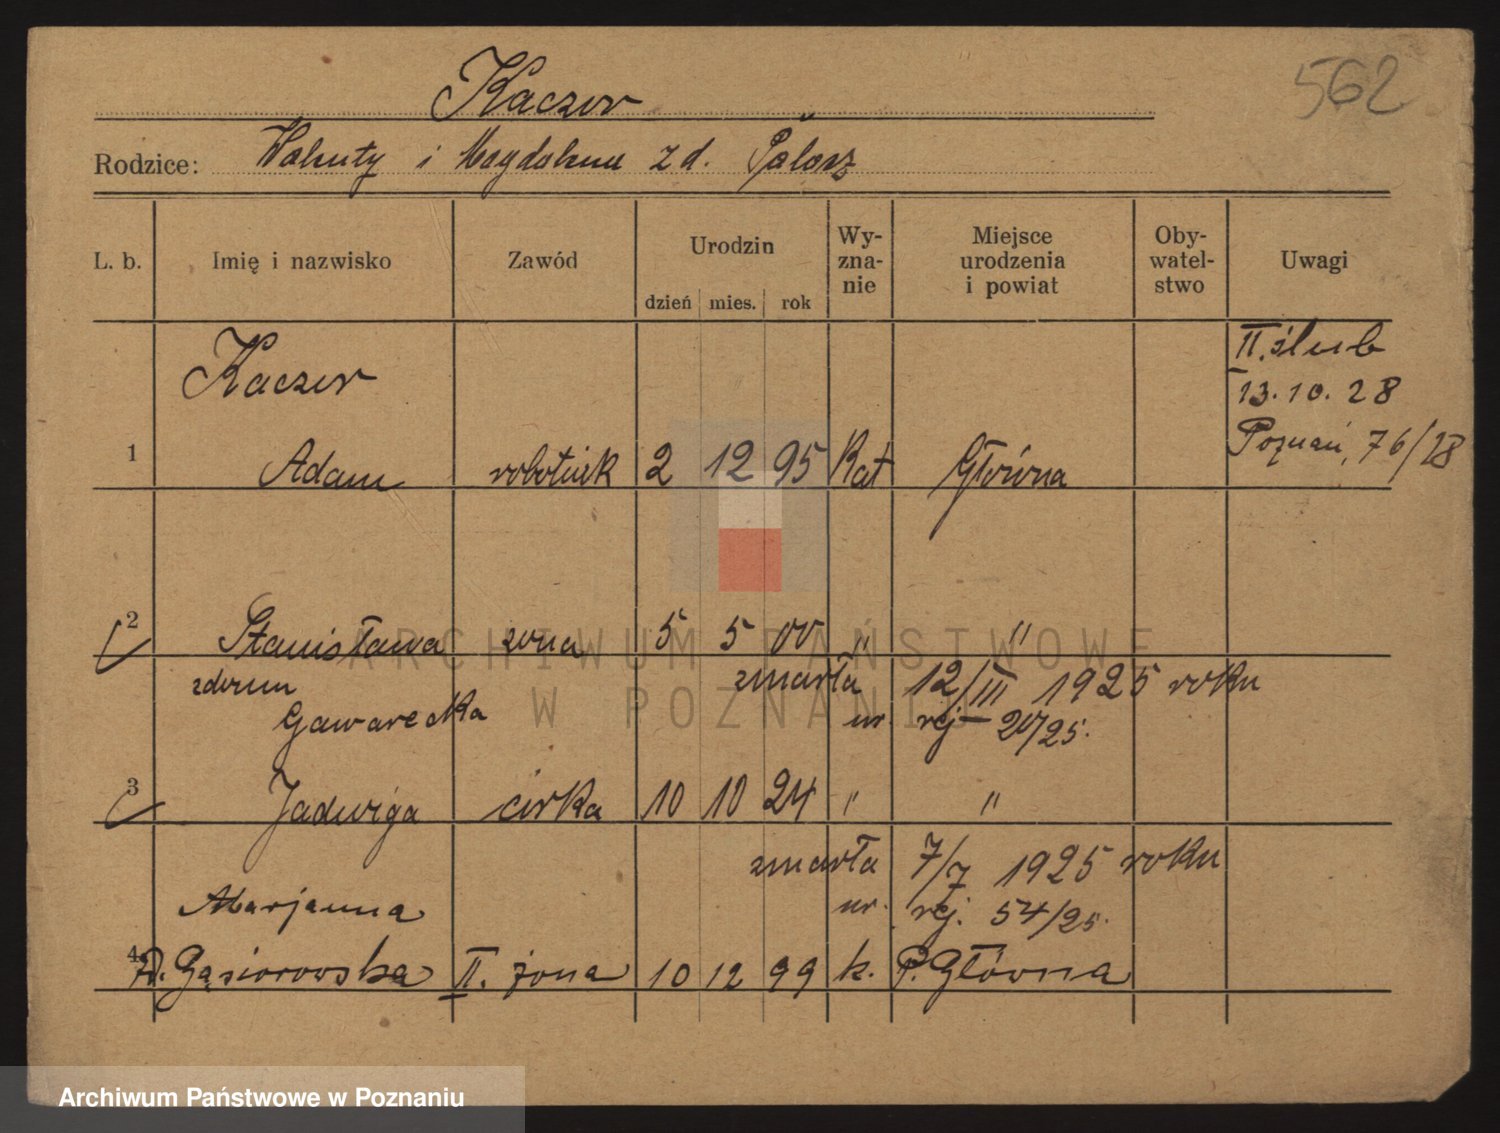 562
Kaczor
Rodzice: Walenty i Magdalena z d.
L. b. Imię i nazwisko Zawód Urodzin dzień mies. rok Wy-zna-nie Miejsce urodzenia i powiat Oby-watel-stwo Uwagi
Kaczor
II. ślub
13.10.28
Poznań, 76/28
1 Adam robotnik 2 12 95 Kat Główna
2 Stanisława żona 5 5 00 " "
zmarła 12/III 1925 roku
Gawarecka nr. rej – 20/25.
3 Jadwiga córka 10 10 24 " "
zmarła 7/7 1925 roku
Marjanna nr. rej. 54/25.
4 zd. Gąsiorowska II. żona 10 12 99 k. P. Główna
ARCHIWUM PAŃSTWOWE
W POZNANIU
Archiwum Państwowe w Poznaniu